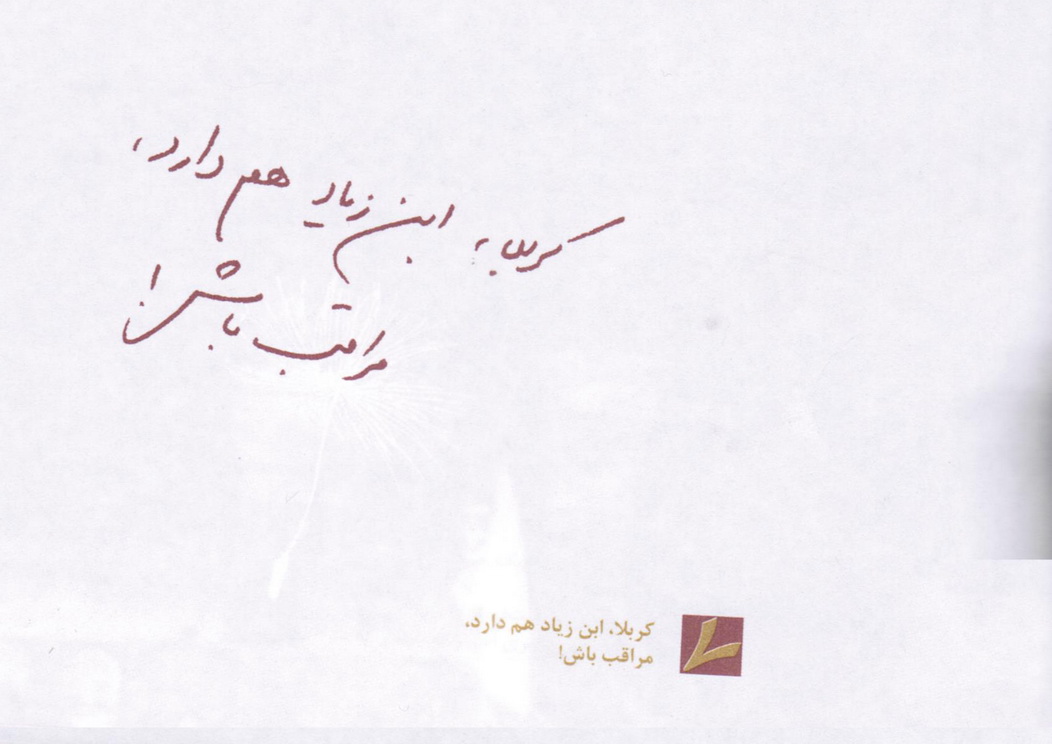 کربلا، ابن زیاد هم دارد،
مراقب باش!
کربلا، ابن زیاد هم دارد،
مراقب باش!